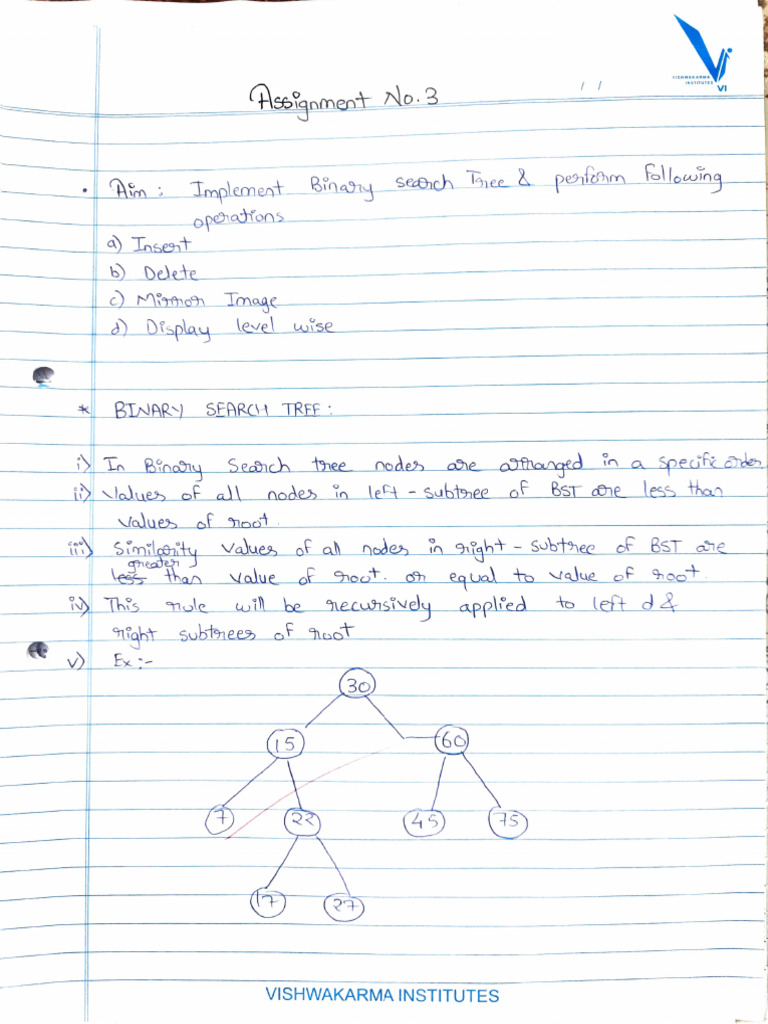 VISHWAKARMA
INSTITUTES VI
Assignment No. 3
/ /
• Aim : Implement Binary search Tree & perform following
operations
a) Insert
b) Delete
c) Mirror Image
d) Display level wise
* BINARY SEARCH TREE :
i) In Binary Search tree nodes are arranged in a specific order
ii) Values of all nodes in left - subtree of BST are less than
values of root.
iii) Similarity values of all nodes in right - subtree of BST are
greater
less than value of root. or equal to value of root.
iv) This rule will be recursively applied to left d &
right subtrees of root
v) Ex :-
30
15 60
7 22 45 75
17 27
VISHWAKARMA INSTITUTES